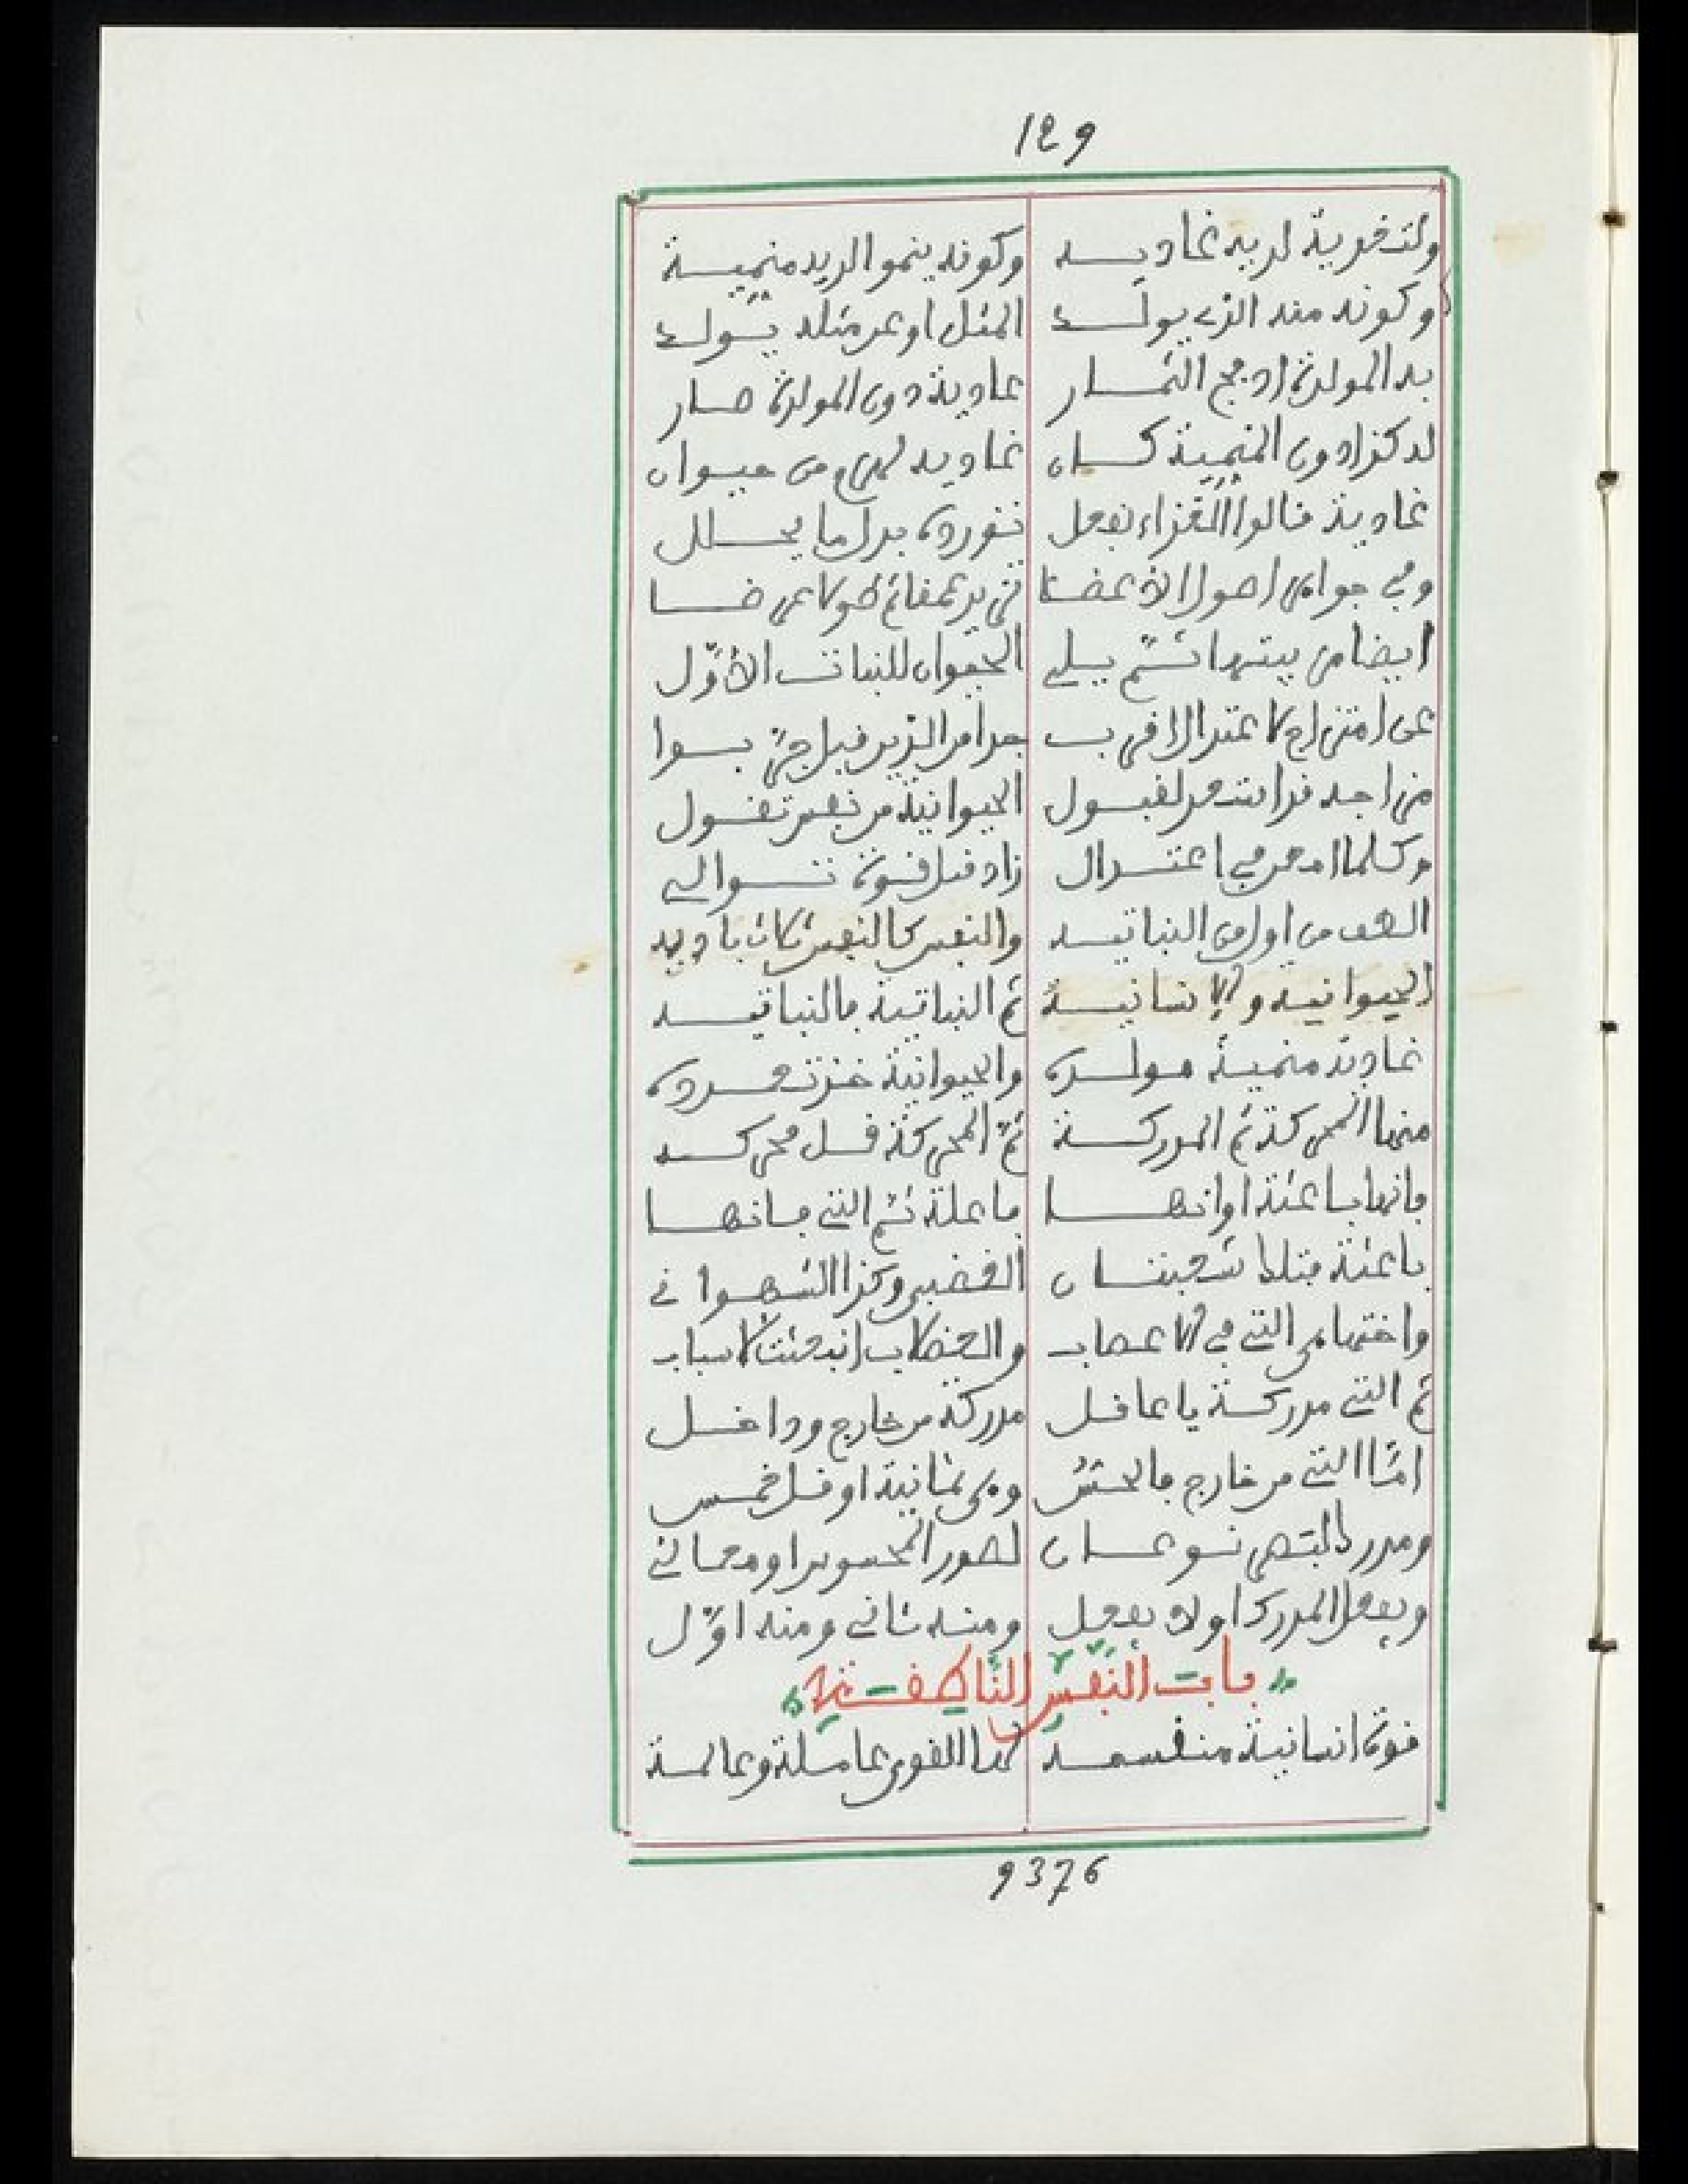 129
ولتقوية لديه غاديه وكونه ينمو الديه منمية
وكونه منه الذي يولد المثل او عن مثله يولد
به المولدة اد مج الثمار غادية دون المولدة صار
له كذا دون المنمية كان غاديه لهرم من حيوان
غادية قالوا الغذاء تفعل بدل ما يحلل
وفي جواهر اصول الأعضا تزيد عمقا ثم طولا عرضا
ايضا من بيتها ثم يلي الحيوان للنبات الأوّل
عن امتزاج لاعتدال اقرب جدا من الذين قبل
مزاجه قد استعد لقبول الحيوانية من نفس تقول
وكلما امعن في اعتدال زاد قبل قوة توالي
الضعف من اولى النباتيه والنفس كالنفس ثلاث باديه
الحيوانيه والانسانية ثم النباتية فالنباتيه
غادية منمية مولده والحيوانية غذت محرده
منها المحركة ثم المدركة ثمّ المحركة قل محركه
فانها باعثة او انها فاعلة ثم التي فانها
باعثة فتلك شعبتان الغضبي وكذا الشهواني
واختها هي التي في الاعصاب والعضلات انبعثت لاسباب
ثم التي مدركة يا عاقل مدركة من خارج وداخل
امّا التي من خارج فالحسّ وهي ثمانية او قل خمس
ومدرك البتهى نوعان لصور المحسوس او معاني
وبفعل المدرك اولا بفعل ومنه ثاني ومنه اوّل
باب النفس الناطقة
قوة انسانية منقسمه لها القوى عاملة وعالمة
9376